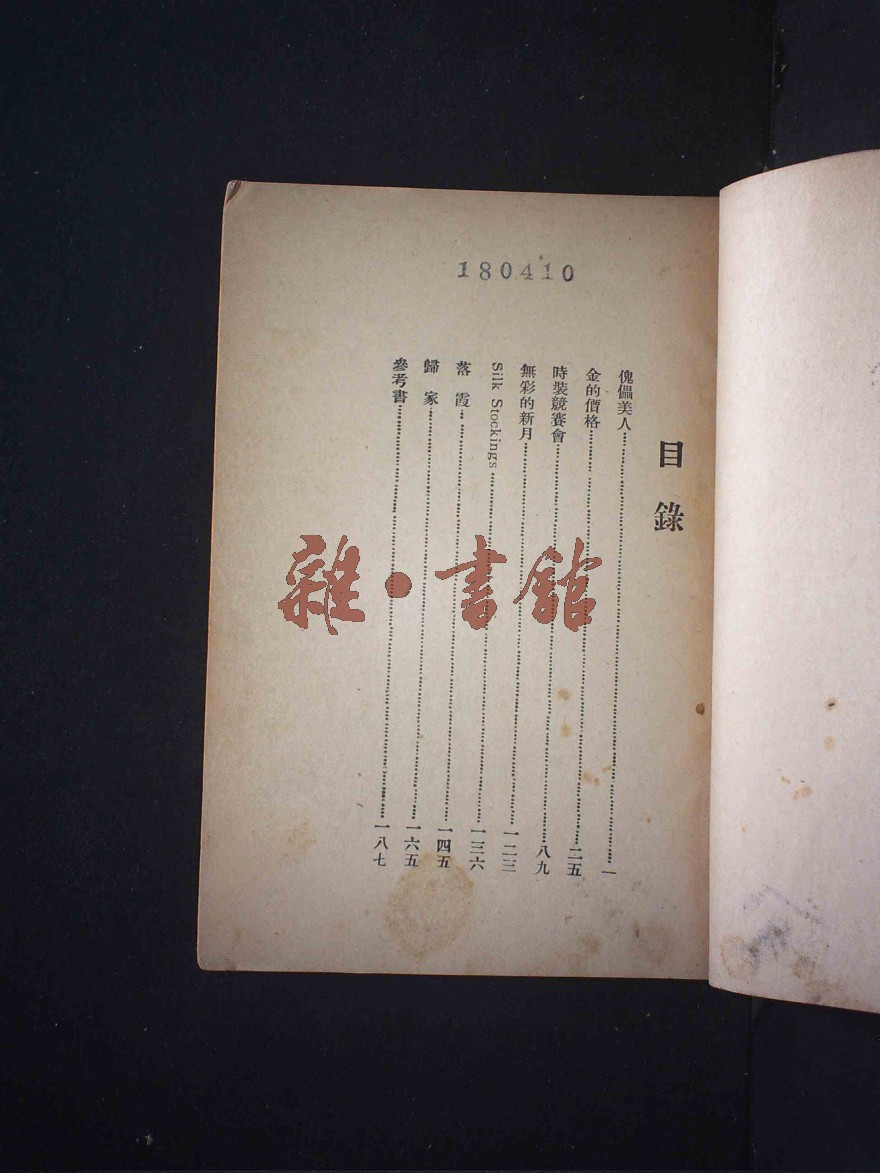 180410
目錄
傀儡美人……一
金的價格……二五
時裝競賽會……八九
無彩的新月……一二三
Silk Stockings……一三六
落霞……一四五
歸家……一六五
參考書……一八七
雜·書館